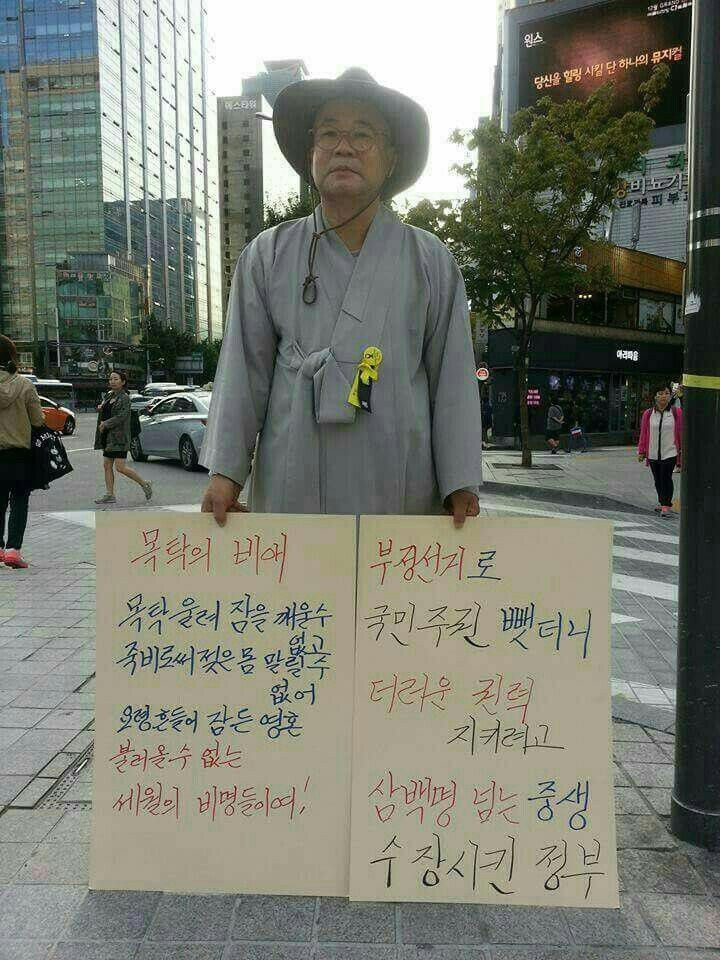 원스
당신을 힐링 시킬 단 하나의 뮤지컬
에스타워
비뇨기
피부
아리따움
목탁의 비애
목탁 울려 잠을 깨울수
없고
죽비로써 젖은 몸 말릴 수
없어
요령흔들어 잠든 영혼
불러올수 없는
세월의 비명들이여!
부정선거로
국민주권 뺏더니
더러운 권력
지키려고
삼백명 넘는 중생
수장시킨 정부